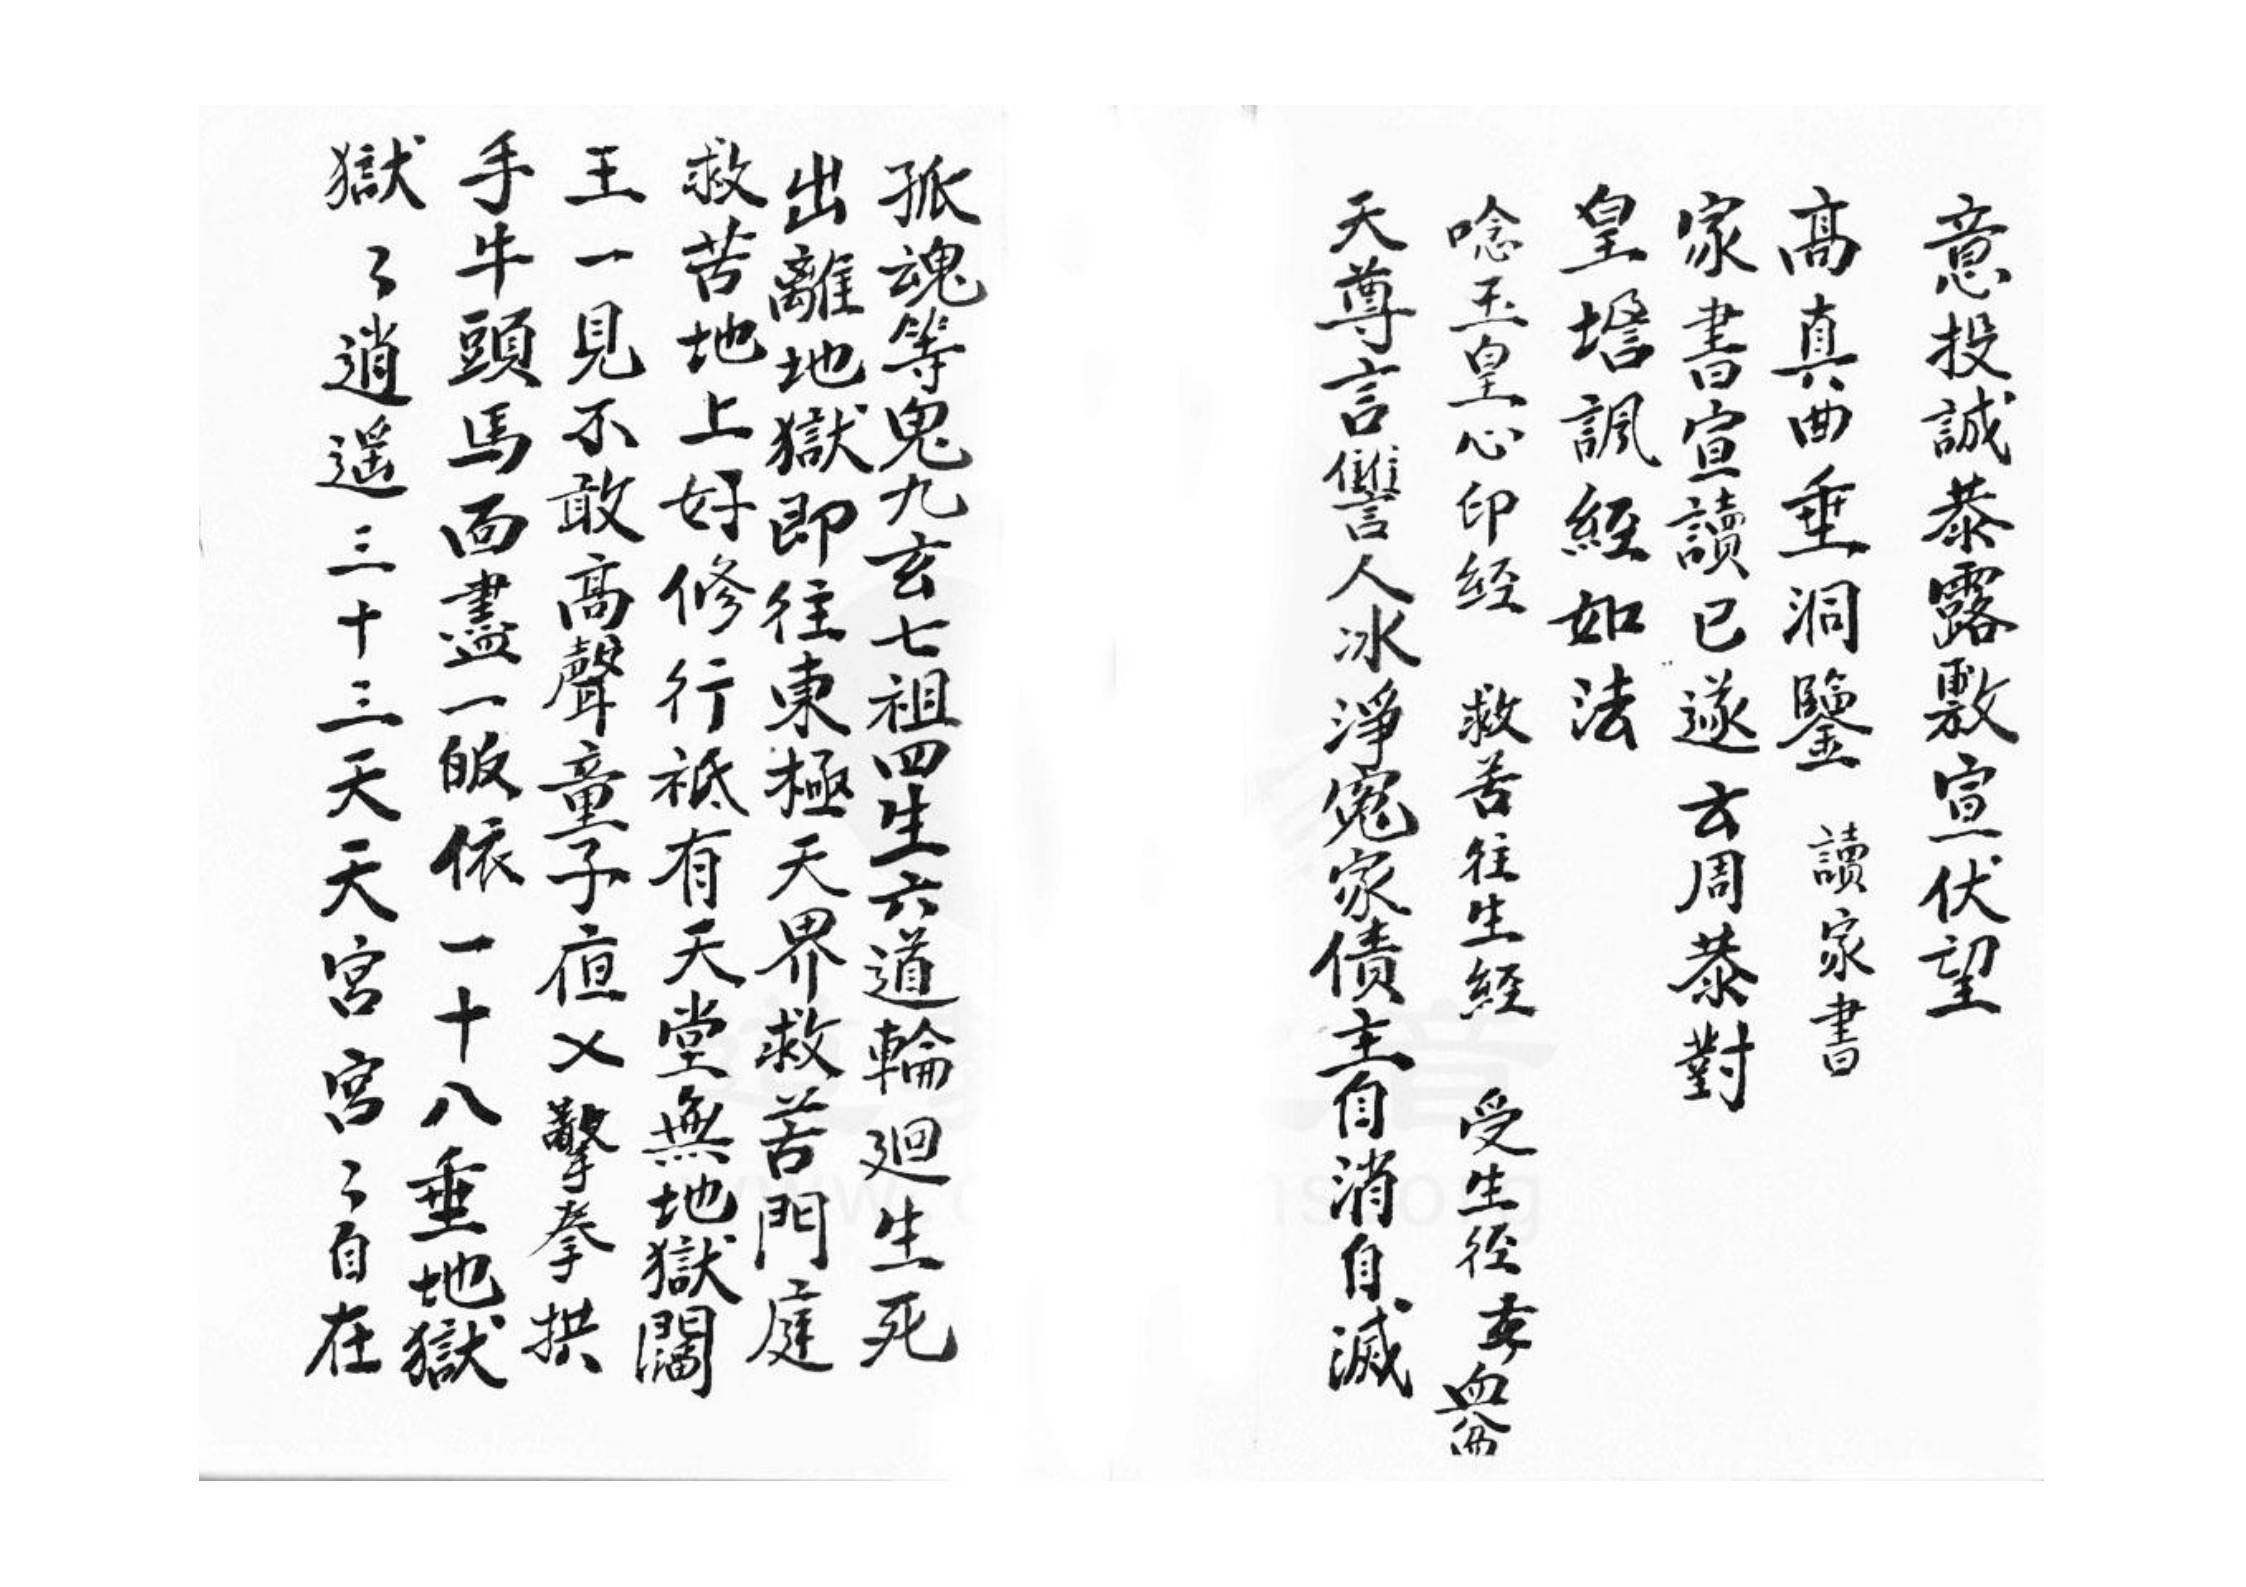 意投誠恭露敷宣伏望
高真曲垂洞鑒 讀家書
家書宣讀已遂云周恭對
皇壇諷經如法
唸玉皇心印经 救苦往生經 受生径 血盆
天尊言讐人冰淨寃家債主自消自滅
孤魂等鬼九玄七祖四生六道輪廻生死
出離地獄即往東極天界救苦門庭
救苦地上好修行祇有天堂無地獄閻
王一見不敢高聲童子夜乂擎拳拱
手牛頭馬面盡一皈依一十八重地獄
獄〻逍遥三十三天天宮宮〻自在